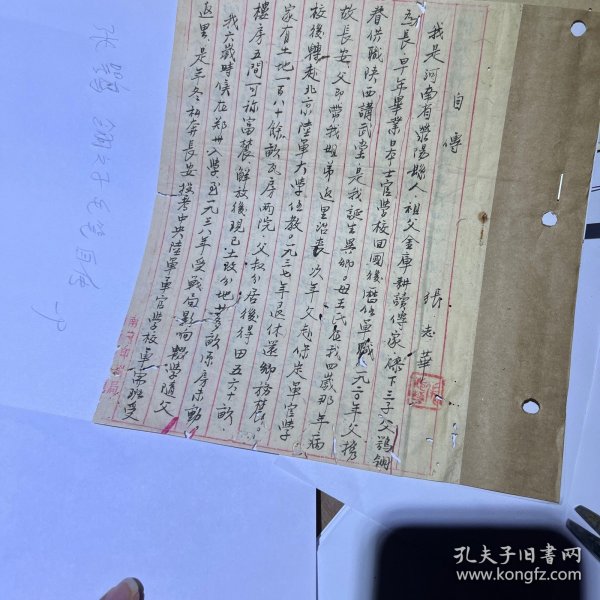 自傳
張志華
我是河南省滎陽縣人祖父金庫耕讀傳家碌下三子父鴻鈿
為長早年畢業日本士官學校回國後歷任軍職一九二〇年父携
眷供職陝西講武堂是我誕生異鄉母王氏在我四歲那年病
故長安父即帶我姐弟返里治喪次年父赴保定軍官學
校後轉赴北京陸軍大學任教一九三七年退休還鄉務農
家有土地一百八十餘畝瓦房兩院父叔分居後得田五六十畝
樓房五間可称富農解放後現已土改分地廿多畝
我六歲時候在郑州入學至一九三八年受戰局影响輟學隨父
返里是年冬奔長安投考中央陸軍軍官學校軍常班受
孔夫子旧书网
www.kongfz.com